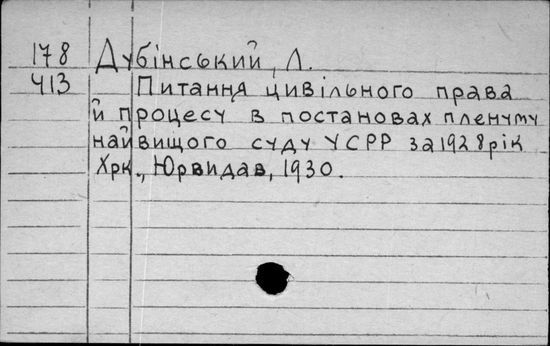 178 Дубінський, Л.
413 Питання цивільного права
й процесу в постановах пленуму
найвищого суду УСРР за 1928 рік
Хрк., Юрвидав, 1930.